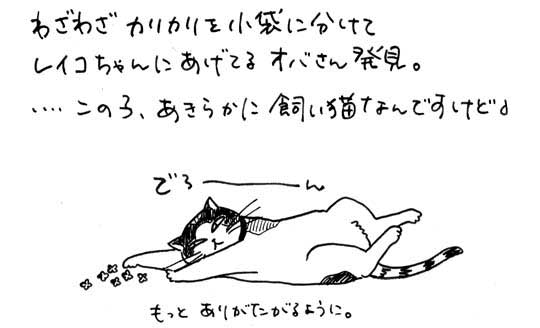 わざわざ カリカリを小袋に分けて
レイコちゃんにあげてる オバさん発見。
‥‥この子、あきらかに 飼い猫なんですけど♪
でろ――――ん
もっと ありがたがるように。